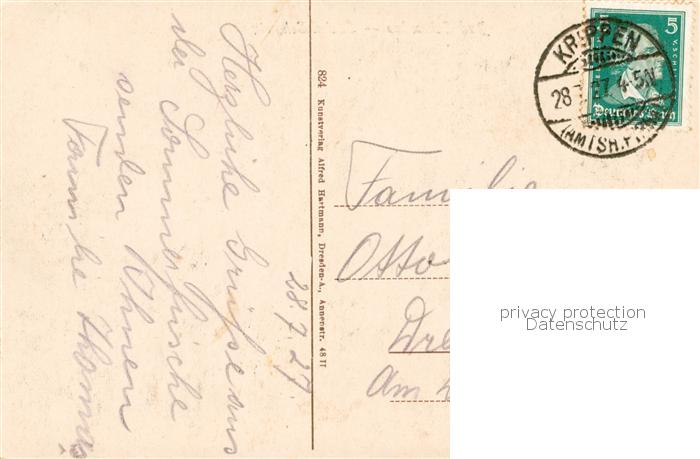 Herzliche Grüße aus
der Sommerfrische
senden Ihnen
Familie Thomas
28.7.27.
824 Kunstverlag Alfred Hartmann, Dresden-A., Annenstr. 48 II
KRIPPEN
28 27. 4-5N
(AMTSH. PI
5
Familie
Otto
Dre
Am
privacy protection
Datenschutz